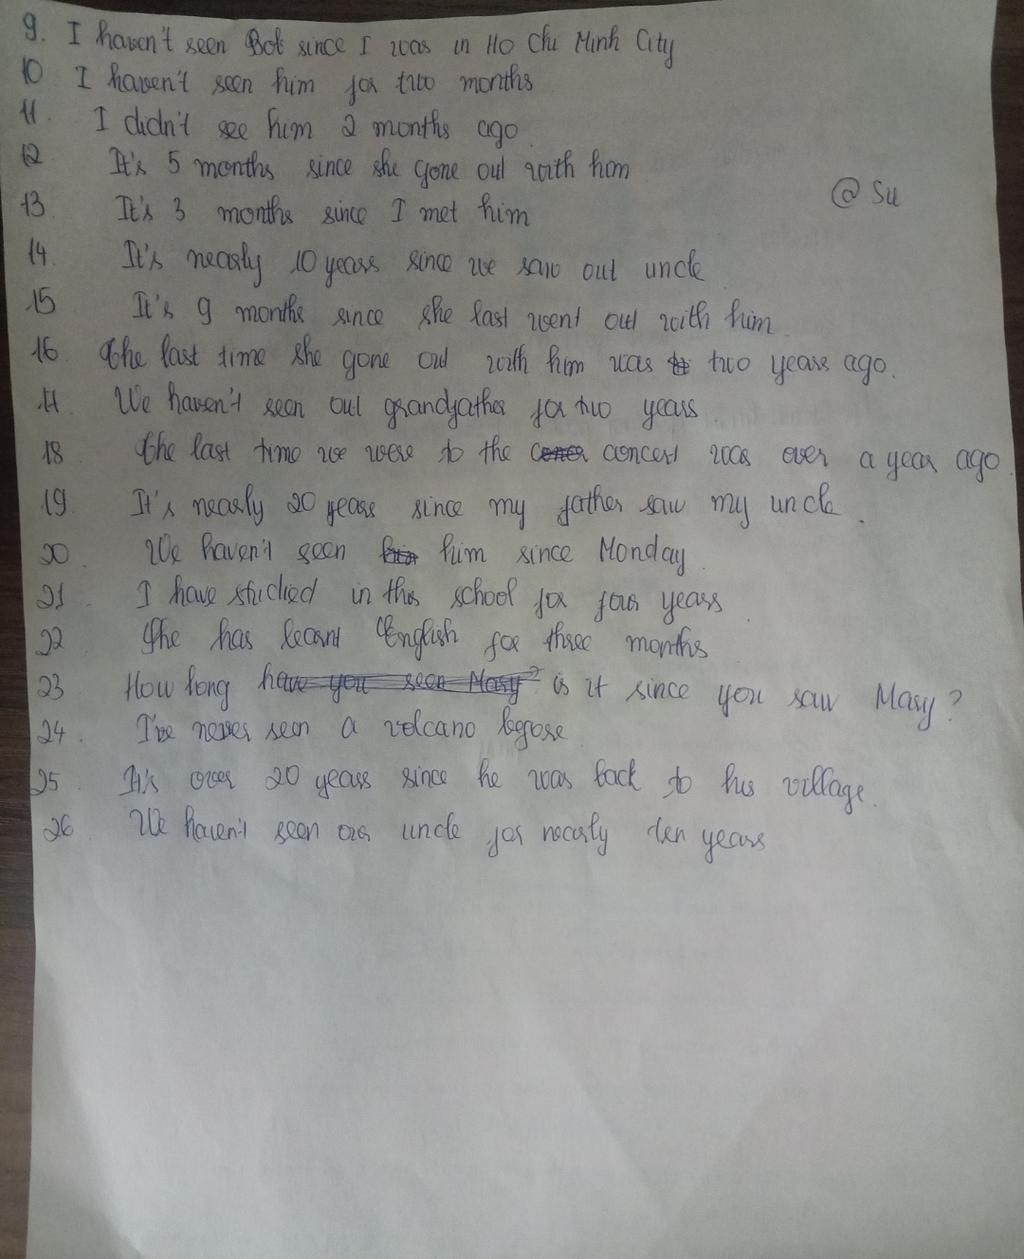 9. I haven't seen Bob since I was in Ho Chi Minh City
10 I haven't seen him for two months
11. I didn't see him 2 months ago
12 It's 5 months since she gone out with him
@ Su
13 It's 3 months since I met him
14. It's nearly 10 years since we saw our uncle
15 It's 9 months since she last went out with him
16 The last time she gone out with him was two years ago.
17. We haven't seen our grandfather for two years
18 The last time we were to the concert was over a year ago
19 It's nearly 20 years since my father saw my uncle.
20 We haven't seen him since Monday
21 I have studied in this school for four years
22 She has learnt English for three months
23 How long have you seen Mary? is it since you saw Mary?
24. I've never seen a volcano before
25 It's over 20 years since he was back to his village.
26 We haven't seen our uncle for nearly ten years